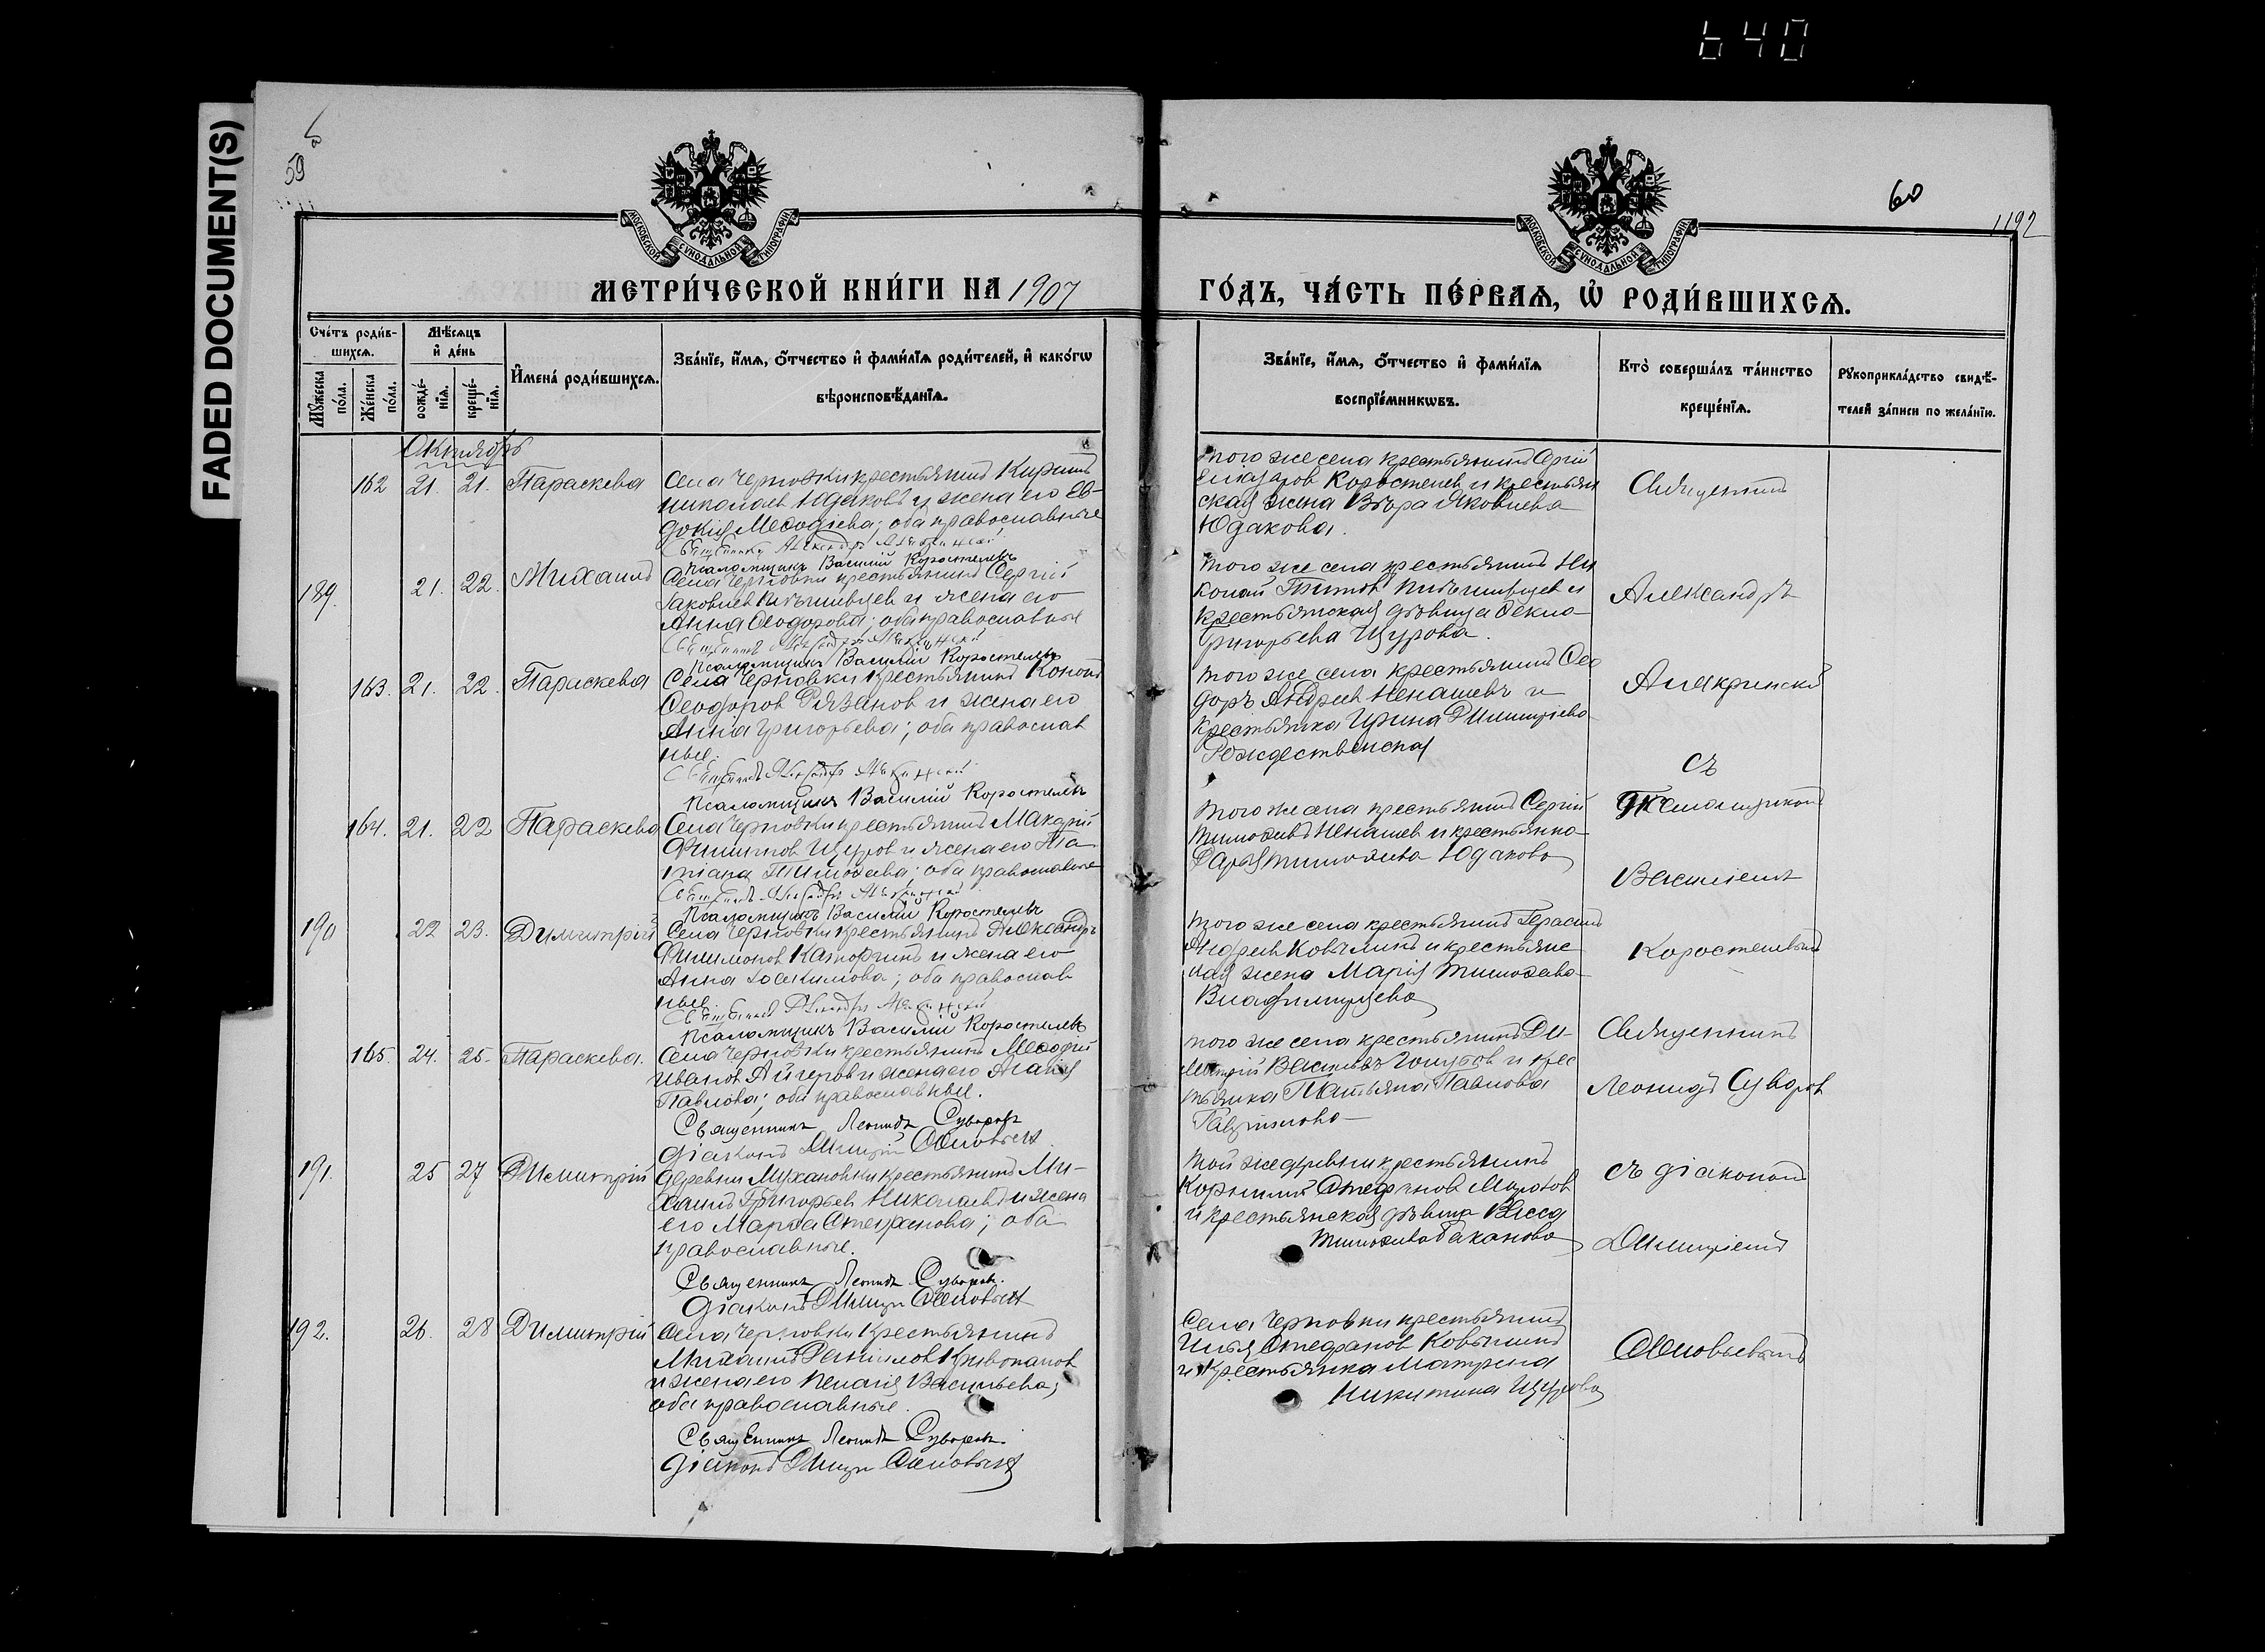 640
FADED DOCUMENT(S)
59
60
1192
МОСКОВСКОЙ СѴНОДАЛЬНОЙ ТИПОГРАФІИ
МОСКОВСКОЙ СѴНОДАЛЬНОЙ ТИПОГРАФІИ
МЕТРИ́ЧЕСКОЙ КНИ́ГИ НА 1907
ГО́ДЪ, ЧА́СТЬ ПЕ́РВАѦ, Ѽ РОДИ́ВШИХСѦ.
Сче́тъ роди́в-
шихсѧ.
Мѣ́сѧцъ
и҆ де́нь
Мꙋ́жеска по́ла.
Же́нска по́ла.
рожде́-
нїѧ.
креще́-
нїѧ.
И҆мена̀ роди́вшихсѧ.
Зва́нїе, и҆́мѧ, ѻ҆́тчество и҆ фами́лїѧ роди́телей, и҆ како́гѡ
вѣроисповѣ́данїѧ.
Зва́нїе, и҆́мѧ, ѻ҆́тчество и҆ фами́лїѧ
воспрїе́мникѡвъ.
Кто̀ соверша́лъ та́инство
креще́нїѧ.
Рꙋкоприкла́дство свидѣ́-
телей за́писи по жела́нїю.
Октябрь
162 21. 21. Параскева
Села Черновки крестьянинъ Кириллъ
Николаев Юдаковъ и жена его Ев-
докия Меѳодіева; оба православные
Священникъ Александръ
Псаломщикъ Василій Коростелевъ
того же села крестьянинъ Сергій
Елиазаров Коростелев и крестьян
ская жена Вѣра Яковлева
Юдакова.
Священникъ
189. 21. 22. Михаилъ
Села Черновки крестьянинъ Сергій
Іаковлев и жена его
Анна Ѳеодорова; оба православные
Священникъ Александръ
Псаломщикъ Василій Коростелевъ
того же села крестьянинъ Ни
колай Титов и
крестьянская дѣвица Ѳекла
Григорьева Щурова.
Александръ
163. 21. 22. Параскева
Села Черновки крестьянинъ Кононъ
Ѳеодоров Рязанов и жена его
Анна Григорьева; оба православ
ные.
Священникъ Александръ
Псаломщикъ Василій Коростелевъ
того же села крестьянинъ Ѳео
доръ Андреев Ненашевъ и
крестьянка Ирина Димитріева
Рождественская
Алякринскій
съ
164. 21. 22 Параскева
Села Черновки крестьянинъ Макарій
Филиппов Щуров и жена его Та
тіана Тимоѳеева; оба православные
Священникъ Александръ
Псаломщикъ Василій Коростелевъ
того же села крестьянинъ Сергій
Тимоѳеевъ Ненашев и крестьянка
Дарья Тимоѳеева Юдакова
Псаломщикомъ
Василіемъ
190 22 23. Димитрій
Села Черновки крестьянинъ Александръ
Филимонов Каторгинъ и жена его
Анна Іоакимова; оба православ
ные.
Священникъ Александръ
Псаломщикъ Василій Коростелевъ
того же села крестьянинъ Герасимъ
Андреев Ковылинъ и крестьянс
кая жена Марія Тимоѳеева
Коростелевымъ
165. 24. 25. Параскева.
Села Черновки крестьянинъ Меѳодій
Иванов и жена его
Павлова; оба православные.
Священникъ Леонидъ Суворовъ
Діаконъ Димитрій
того же села крестьянинъ Ди-
митрій Васильевъ Голубов и крес
тьянка Татьяна Павлова
Гаврилова
Священникъ
Леонидъ Суворов
191. 25 27 Димитрій
Деревни Мухановки крестьянинъ Ми-
хаилъ Григорьев Николаевъ и жена
его Марѳа Стефанова; оба
православные.
Священникъ Леонидъ Суворовъ.
Діаконъ Димитрій
той же деревни крестьянинъ
Корнилій Стефанов
и крестьянская дѣвица Васса
Тимоѳеева Баканова
съ діакономъ
Димитріемъ
192. 26. 28 Димитрій
Села Черновки крестьянинъ
Михаилъ Даниилов Кривопалов
и жена его Пелагія Васильева;
оба православные.
Священникъ Леонидъ Суворовъ.
Діаконъ Димитрій
Села Черновки крестьянинъ
Илья Стефанов Ковылинъ
и крестьянка Матрена
Никитина Щурова